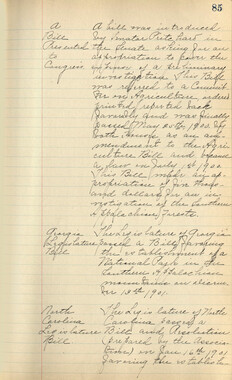 85
A Bill Presented to Congress
A bill was introduced
by Senator Pritchard in
the Senate asking for an
appropriation to cover the
expense of a preliminary
investigation. This Bill
was referred to a Commit.
tee on Agriculture ordered
printed, reported back
favorably and was finally
passed May 25th 1900, by
both houses as an am-
mendment to the Agri-
culture Bill and became
a law on July 1st 1900.
This Bill made an ap-
propriation of five thous-
and dollars for an in-
vestigation of the Southern
Appalachian Forests.
Georgia Legislature Bill
The Legislature of Georgia
passed a Bill, favoring
the establishment of a
National Park in the
Southern Appalachian
mountains on
13th 1901.
North Carolina Legislature Bill
The Legislature of North
Carolina passed a
Bill and Resolution
prepared by the Associa-
tion on Jan 16th 1901
favoring the establish